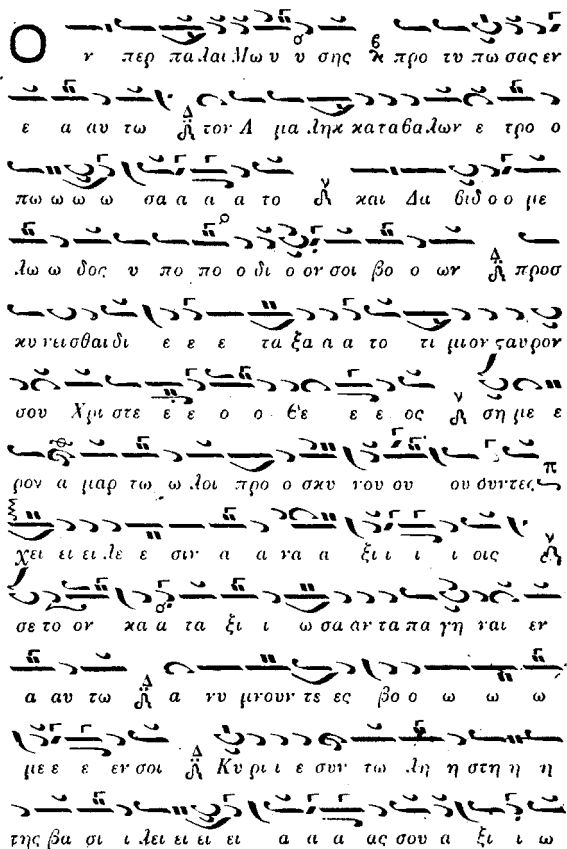 Ο ν περ παλαι Μω υ υ σης προ τυ πω σας εν
ε α αυ τω τον Α μα ληκ καταβαλων ε τρο ο
πω ω ω ω σα α α α το και Δα βιδ ο ο με
λω ω δος υ πο πο ο δι ο ον σοι βο ο ων προσ
κυ νεισθαι δι ε ε ε τα ξα α α το τι μιον ϛαυρον
σου Χρι στε ε ε ο ο Θε ε ε ε ος ση με ε
ρον α μαρ τω ω λοι προ ο σκυ νου ου ου ουντες
χει ει ει λε ε σιν α α να α ξι ι ι ι οις
σε το ον κα α τα ξι ι ω σα αν τα πα γη ναι εν
α αυ τω α νυ μνουν τε ες βο ο ω ω ω ω
με ε ε ε εν σοι Κυ ρι ι ε συν τω λη η στη η η
της βα σι ι λει ει ει ει α α α ας σου α ξι ι ω